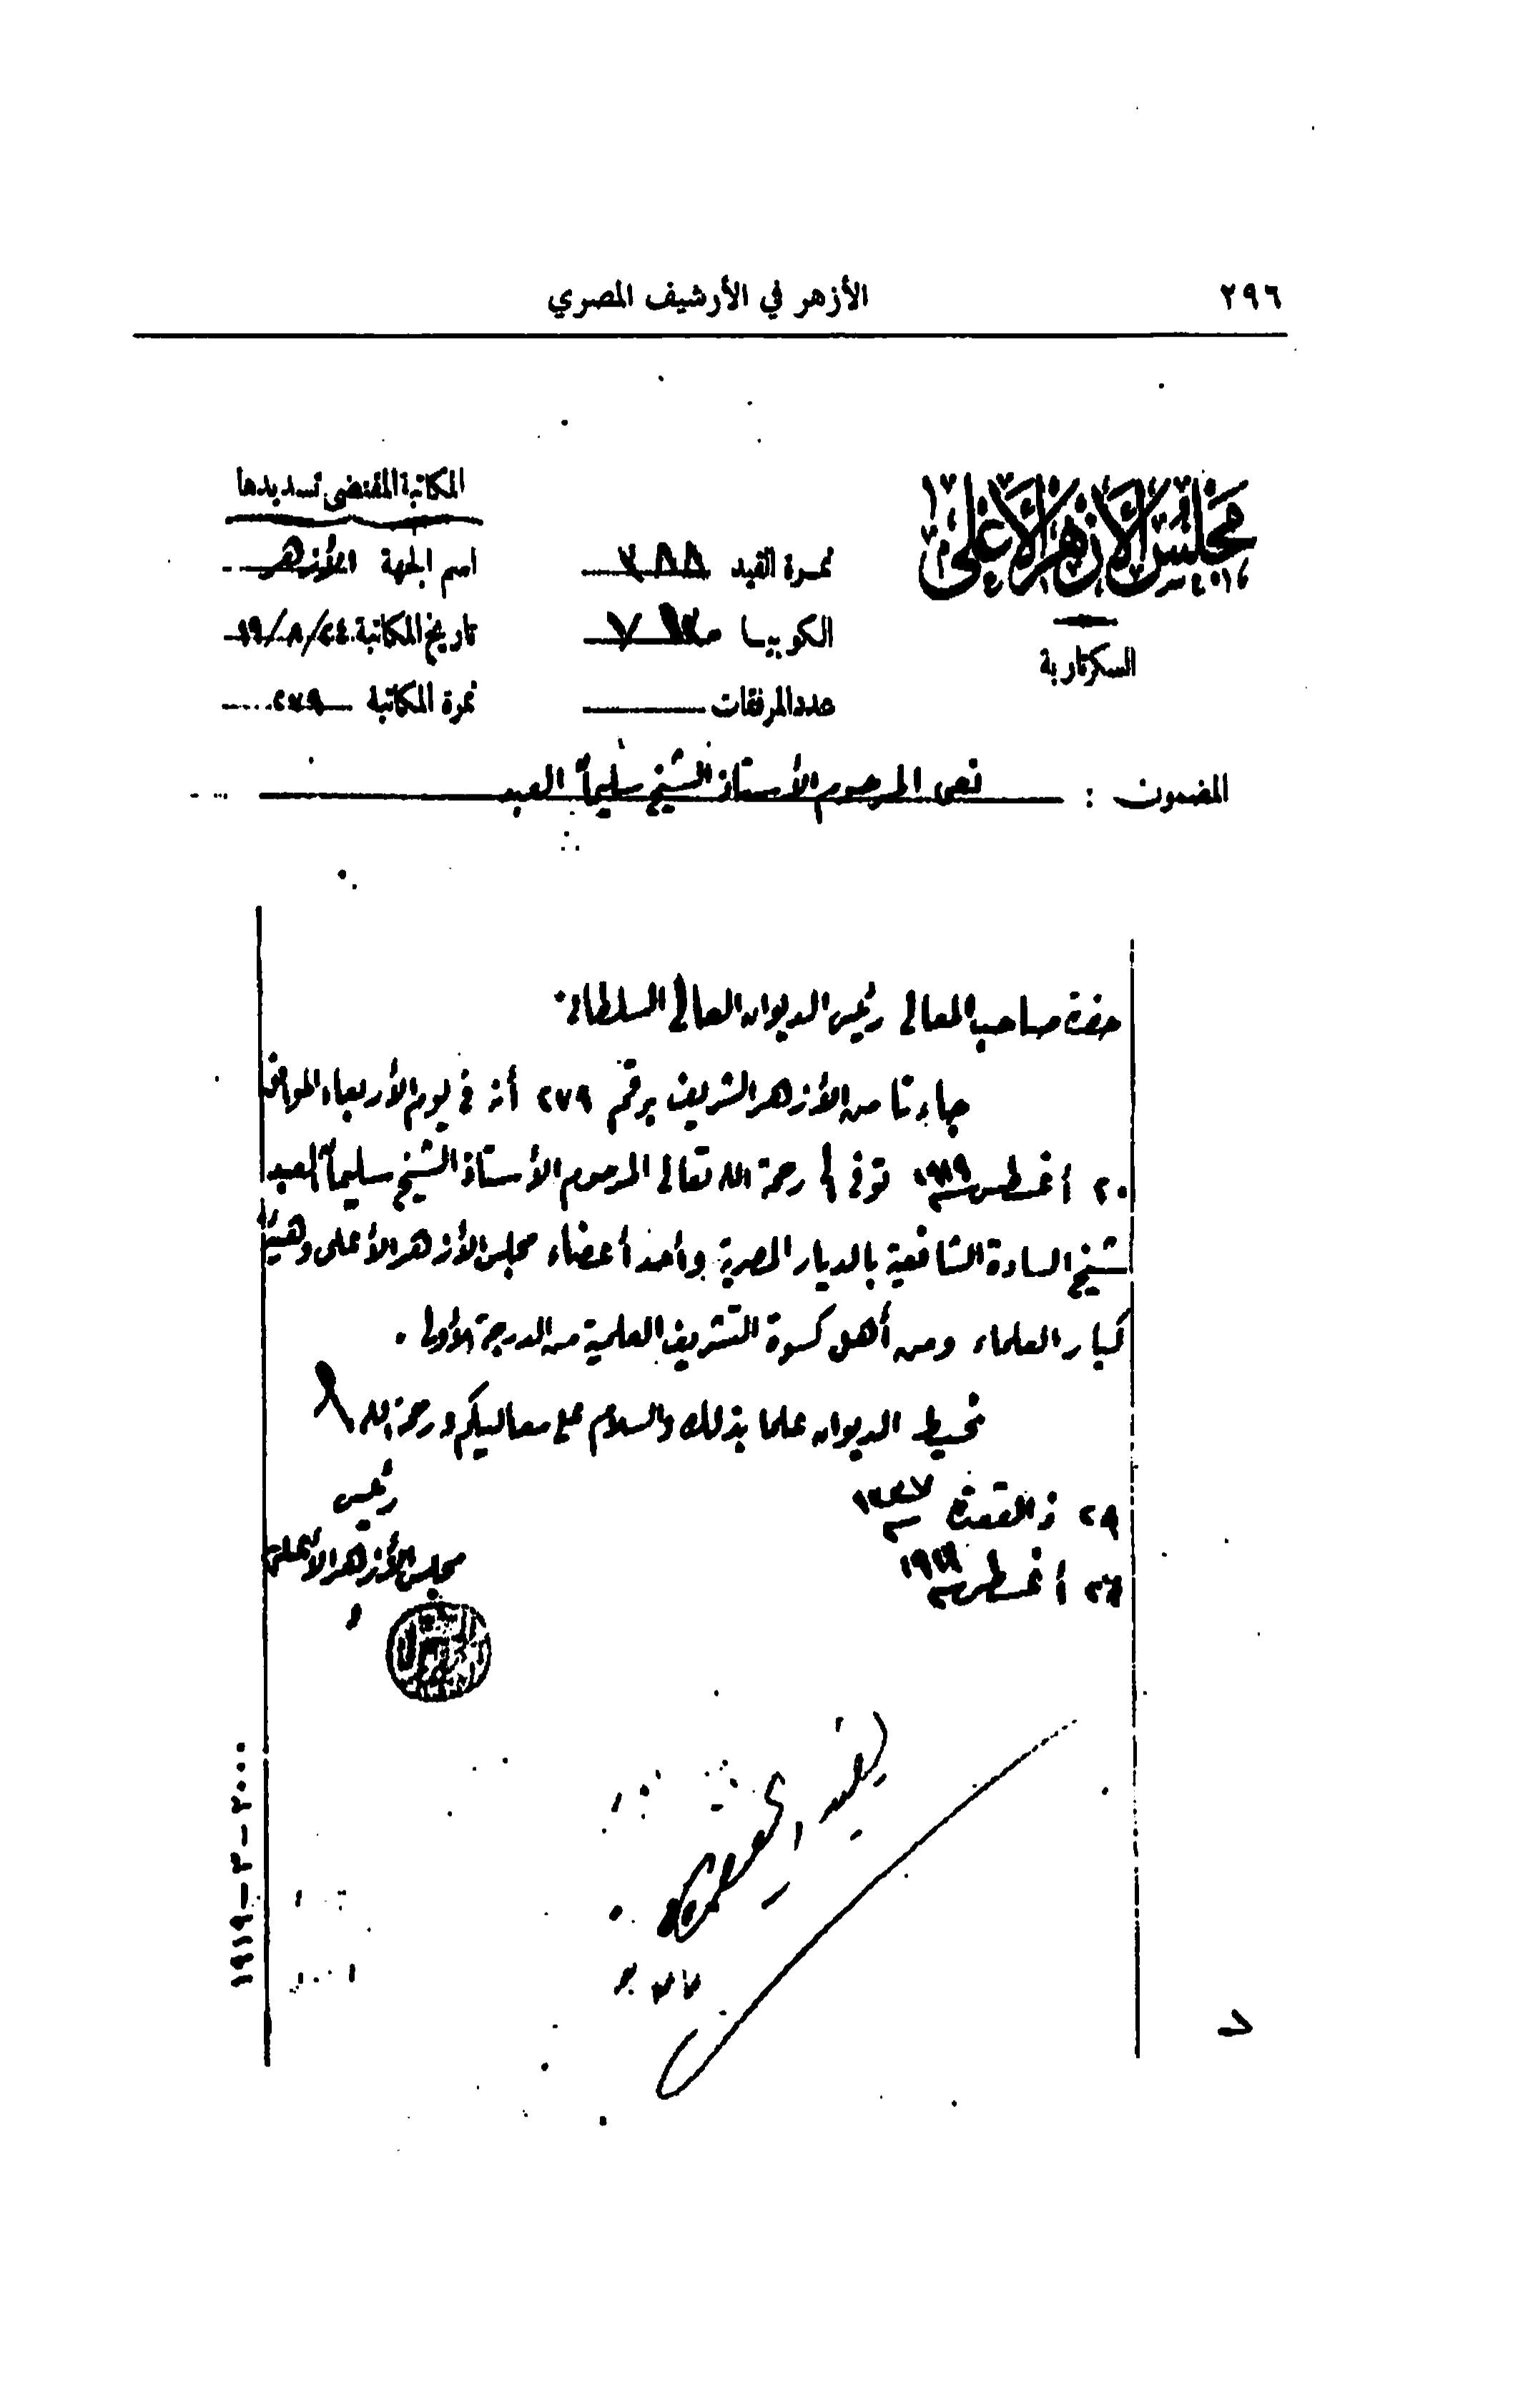 ٢٩٦
الأزهر في الأرشيف المصري
مجلس الأزهر الأعلى
السكرتارية
نمرة القيد
الكوبيا
عدد المرفقات
المكاتبة المقتضى تسديدها
اسم الجهة الأزهر
تاريخ المكاتبة ٢٤/٨/١٩
نمرة المكاتبة ٢٧٩
المضمون : نعى المرحوم الأستاذ الشيخ سليمان العبد
حضرة صاحب المعالى رئيس الديوان العالى السلطانى
جاءنا من الأزهر الشريف برقم ٢٧٩ أنه فى يوم الأربعاء الموافق
٢٠ أغسطس سنة ١٩١٩ توفى الى رحمة الله تعالى المرحوم الأستاذ الشيخ سليمان العبد
شيخ السادة الشافعية بالديار المصرية وأحد أعضاء مجلس الأزهر الأعلى وهيئة
كبار العلماء ومن أهل كسوة التشريف العلمية من الدرجة الأولى .
نحيط الديوان علما بذلك والسلام على معاليكم ورحمة الله
٢٩ ذى القعدة سنة ١٣٣٧
٢٦ أغسطس سنة ١٩١٩
رئيس
مجلس الأزهر الأعلى
١٩١٩-٣-٢٠٠٠